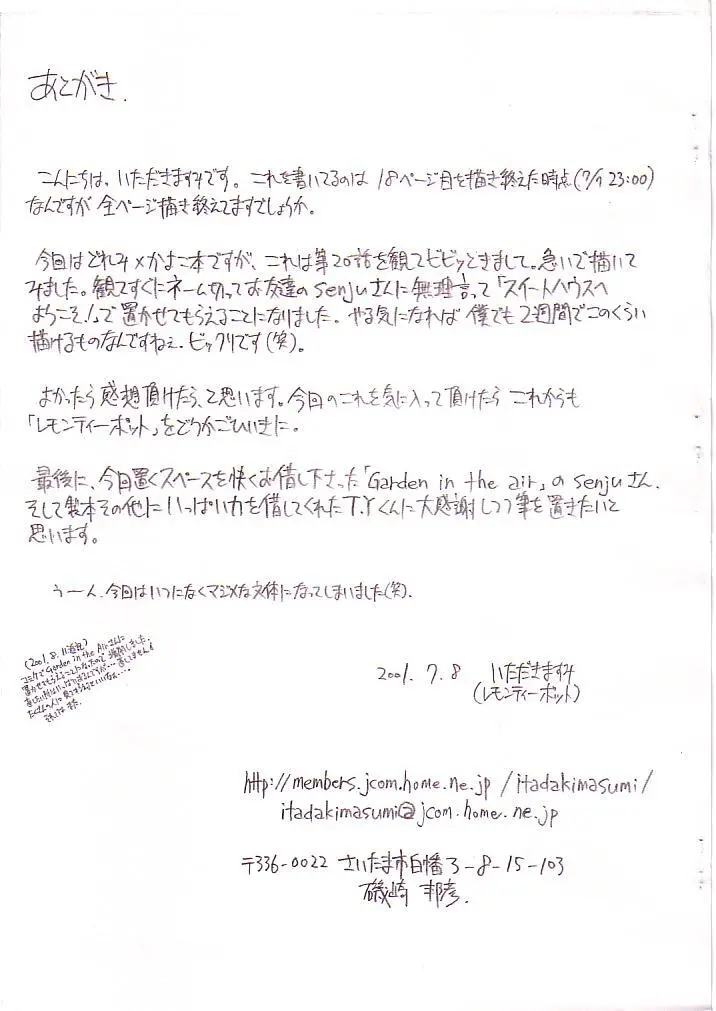 あとがき.
こんにちは、いただきますみです。これを書いてるのは 18ページ目を描き終えた時点(7/7 23:00)
なんですが 全ページ描き終えてますでしょうか。
今回はどれみ×かよこ本ですが、これは第20話を観てビビッときまして。急いで描いて
みました。観てすぐにネーム切ってお友達のsenjuさんに無理言って「スイートハウスへ
ようこそ!」で置かせてもらえることになりました。やる気になれば 僕でも2週間でこのくらい
描けるものなんですねぇ.ビックリです(笑)。
よかったら感想頂けたら、と思います。今回のこれを気に入って頂けたら これからも
「レモンティーポット」をどうかごひいきに。
最後に、今回置くスペースを快くお借し下さった「Garden in the air」のsenjuさん、
そして製本その他に いっぱい力を借してくれたT.Yくんに大感謝しつつ筆を置きたいと
思います。
うーん.今回はいつになくマジメな文体になってしまいました(笑).
(2001.8.11追記)
コミケで"Garden in the Air"さんに
置かせてもらえることになったので 増刷しました.
2001. 7. 8 いただきますみ
(レモンティーポット)
http://members.jcom.home.ne.jp/itadakimasumi/
itadakimasumi@jcom.home.ne.jp
〒336-0022 さいたま市白幡3-8-15-103
磯崎 邦彦.